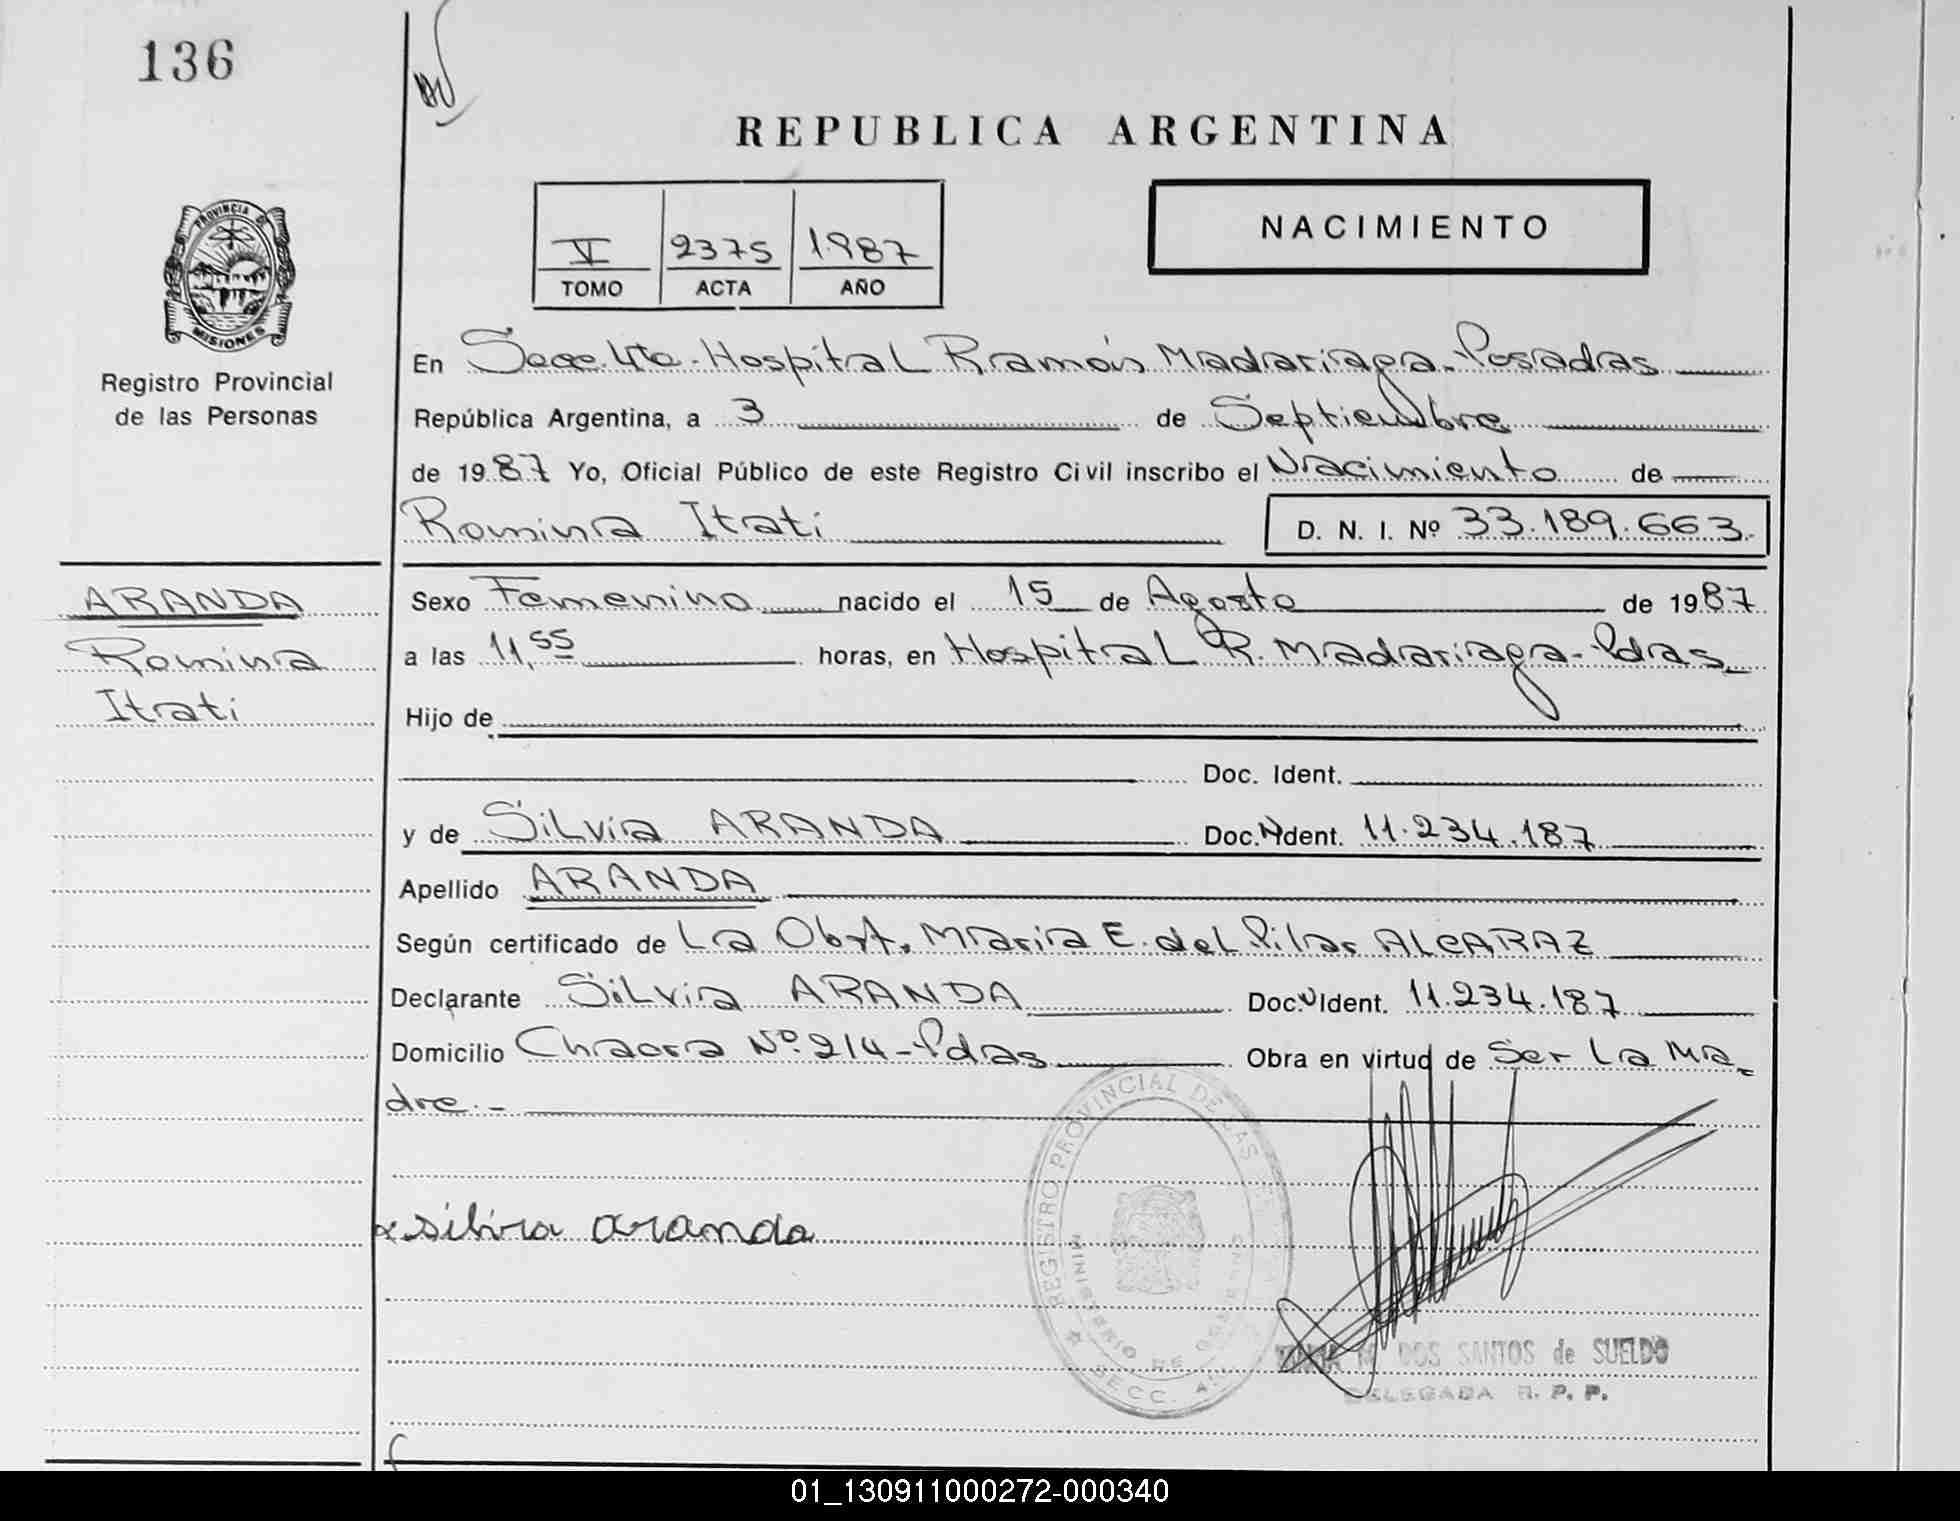 136
REPUBLICA ARGENTINA
NACIMIENTO
V 2375 1987
TOMO ACTA AÑO
PROVINCIA DE
MISIONES
Registro Provincial
de las Personas
En Secc. 4ta - Hospital Ramón Madariaga - Posadas
República Argentina, a 3 de Septiembre
de 1987 Yo, Oficial Público de este Registro Civil inscribo el Nacimiento de
Romina Itati D. N. I. Nº 33.189.663.-
ARANDA
Romina
Itati
Sexo Femenino nacido el 15 de Agosto de 1987
a las 11,55 horas, en Hospital R. Madariaga - Pdas
Hijo de
Doc. Ident.
y de Silvia ARANDA Doc. Ident. 11.234.187
Apellido ARANDA
Según certificado de La Obst. Maria E. del Pilar ALCARAZ
Declarante Silvia ARANDA Doc. Ident. 11.234.187
Domicilio Nº 214 - Pdas Obra en virtud de Ser La Ma-
dre.-
silvia aranda
REGISTRO PROVINCIAL DE LAS
MINISTERIO DE GOBIERNO
SECC. 4ta
M. DOS SANTOS de SUELDO
DELEGADA R. P. P.
01_130911000272-000340